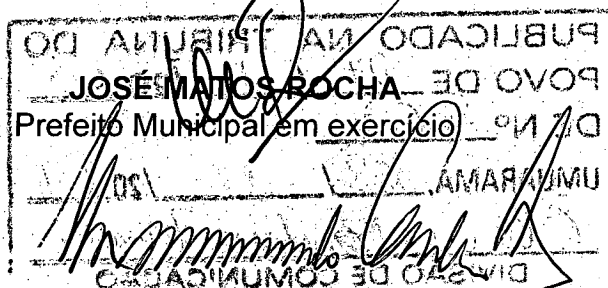 PUBLICADO NA TRIBUNA DO
POVO DE
JOSÉ MATOS ROCHA
Prefeito Municipal em exercício
DE Nº
UMUARAMA, \ \20
DIVISÃO DE COMUNICAÇÃO